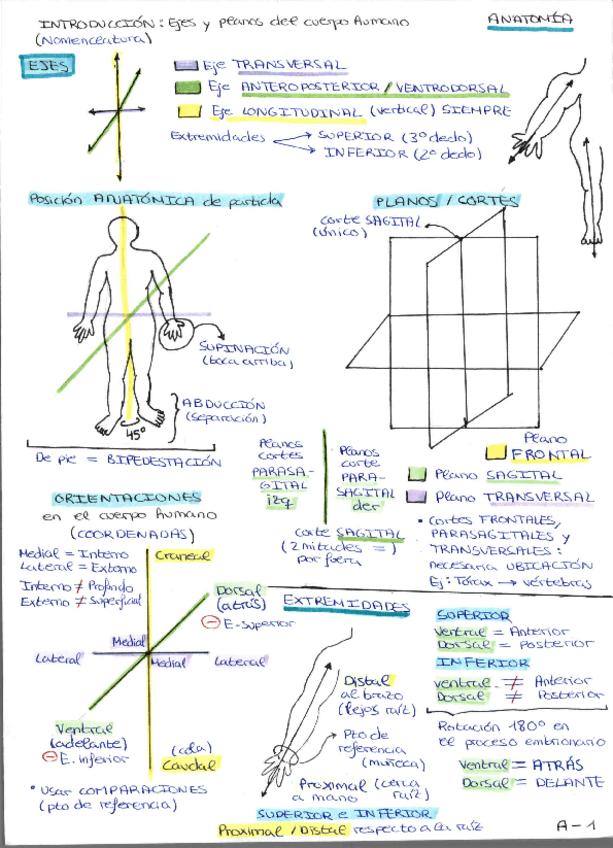 INTRODUCCIÓN: Ejes y planos del cuerpo humano
(Nomenclatura)
ANATOMÍA
EJES
Eje TRANSVERSAL
Eje ANTEROPOSTERIOR / VENTRODORSAL
Eje LONGITUDINAL (vertical) SIEMPRE
Extremidades → SUPERIOR (3º dedo)
→ INFERIOR (2º dedo)
Posición ANATÓMICA de partida
SUPINACIÓN
(boca arriba)
ABDUCCIÓN
(separación)
45º
De pie = BIPEDESTACIÓN
PLANOS / CORTES
corte SAGITAL
(único)
Plano
FRONTAL
Plano SAGITAL
Plano TRANSVERSAL
Planos
cortes
PARASA-
GITAL
izq
Planos
corte
PARA-
SAGITAL
der
corte SAGITAL
(2 mitades =)
por fuera
• Cortes FRONTALES,
PARASAGITALES y
TRANSVERSALES:
necesaria UBICACIÓN
Ej: Tórax → vértebras
ORIENTACIONES
en el cuerpo humano
(COORDENADAS)
Medial = Interno
Lateral = Externo
Interno ≠ Profundo
Externo ≠ Superficial
Craneal
Dorsal
(atrás)
⊖ E. superior
Medial
Lateral
Medial
Lateral
Ventral
(adelante)
⊖ E. inferior
(cola)
Caudal
• Usar COMPARACIONES
(pto de referencia)
EXTREMIDADES
Distal
al brazo
(lejos raíz)
Pto de
referencia
(muñeca)
Proximal (cerca
a mano raíz)
SUPERIOR e INFERIOR
Proximal / Distal respecto a la raíz
SUPERIOR
Ventral = Anterior
Dorsal = Posterior
INFERIOR
Ventral ≠ Anterior
Dorsal ≠ Posterior
Rotación 180º en
el proceso embrionario
Ventral = ATRÁS
Dorsal = DELANTE
A-1